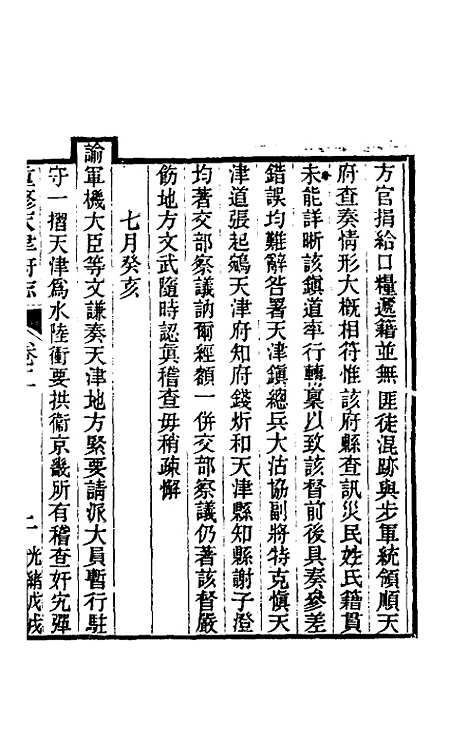 方官捐給口糧遞籍並無匪徒混跡與步軍統領順天
府查奏情形大概相符惟該府縣查訊災民姓氏籍貫
未能詳晰該鎮道率行轉稟以致該督前後具奏參差
錯誤均難辭咎署天津鎮總兵大沽協副將特克愼天
津道張起鵷天津府知府錢炘和天津縣知縣謝子澄
均著交部察議訥爾經額一併交部察議仍著該督嚴
飭地方文武隨時認眞稽查毋稍疎懈
七月癸亥
諭軍機大臣等文謙奏天津地方緊要請派大員暫行駐
守一摺天津爲水陸衝要拱衞京畿所有稽查奸宄彈
重修天津府志 卷二 二 光緒戊戌